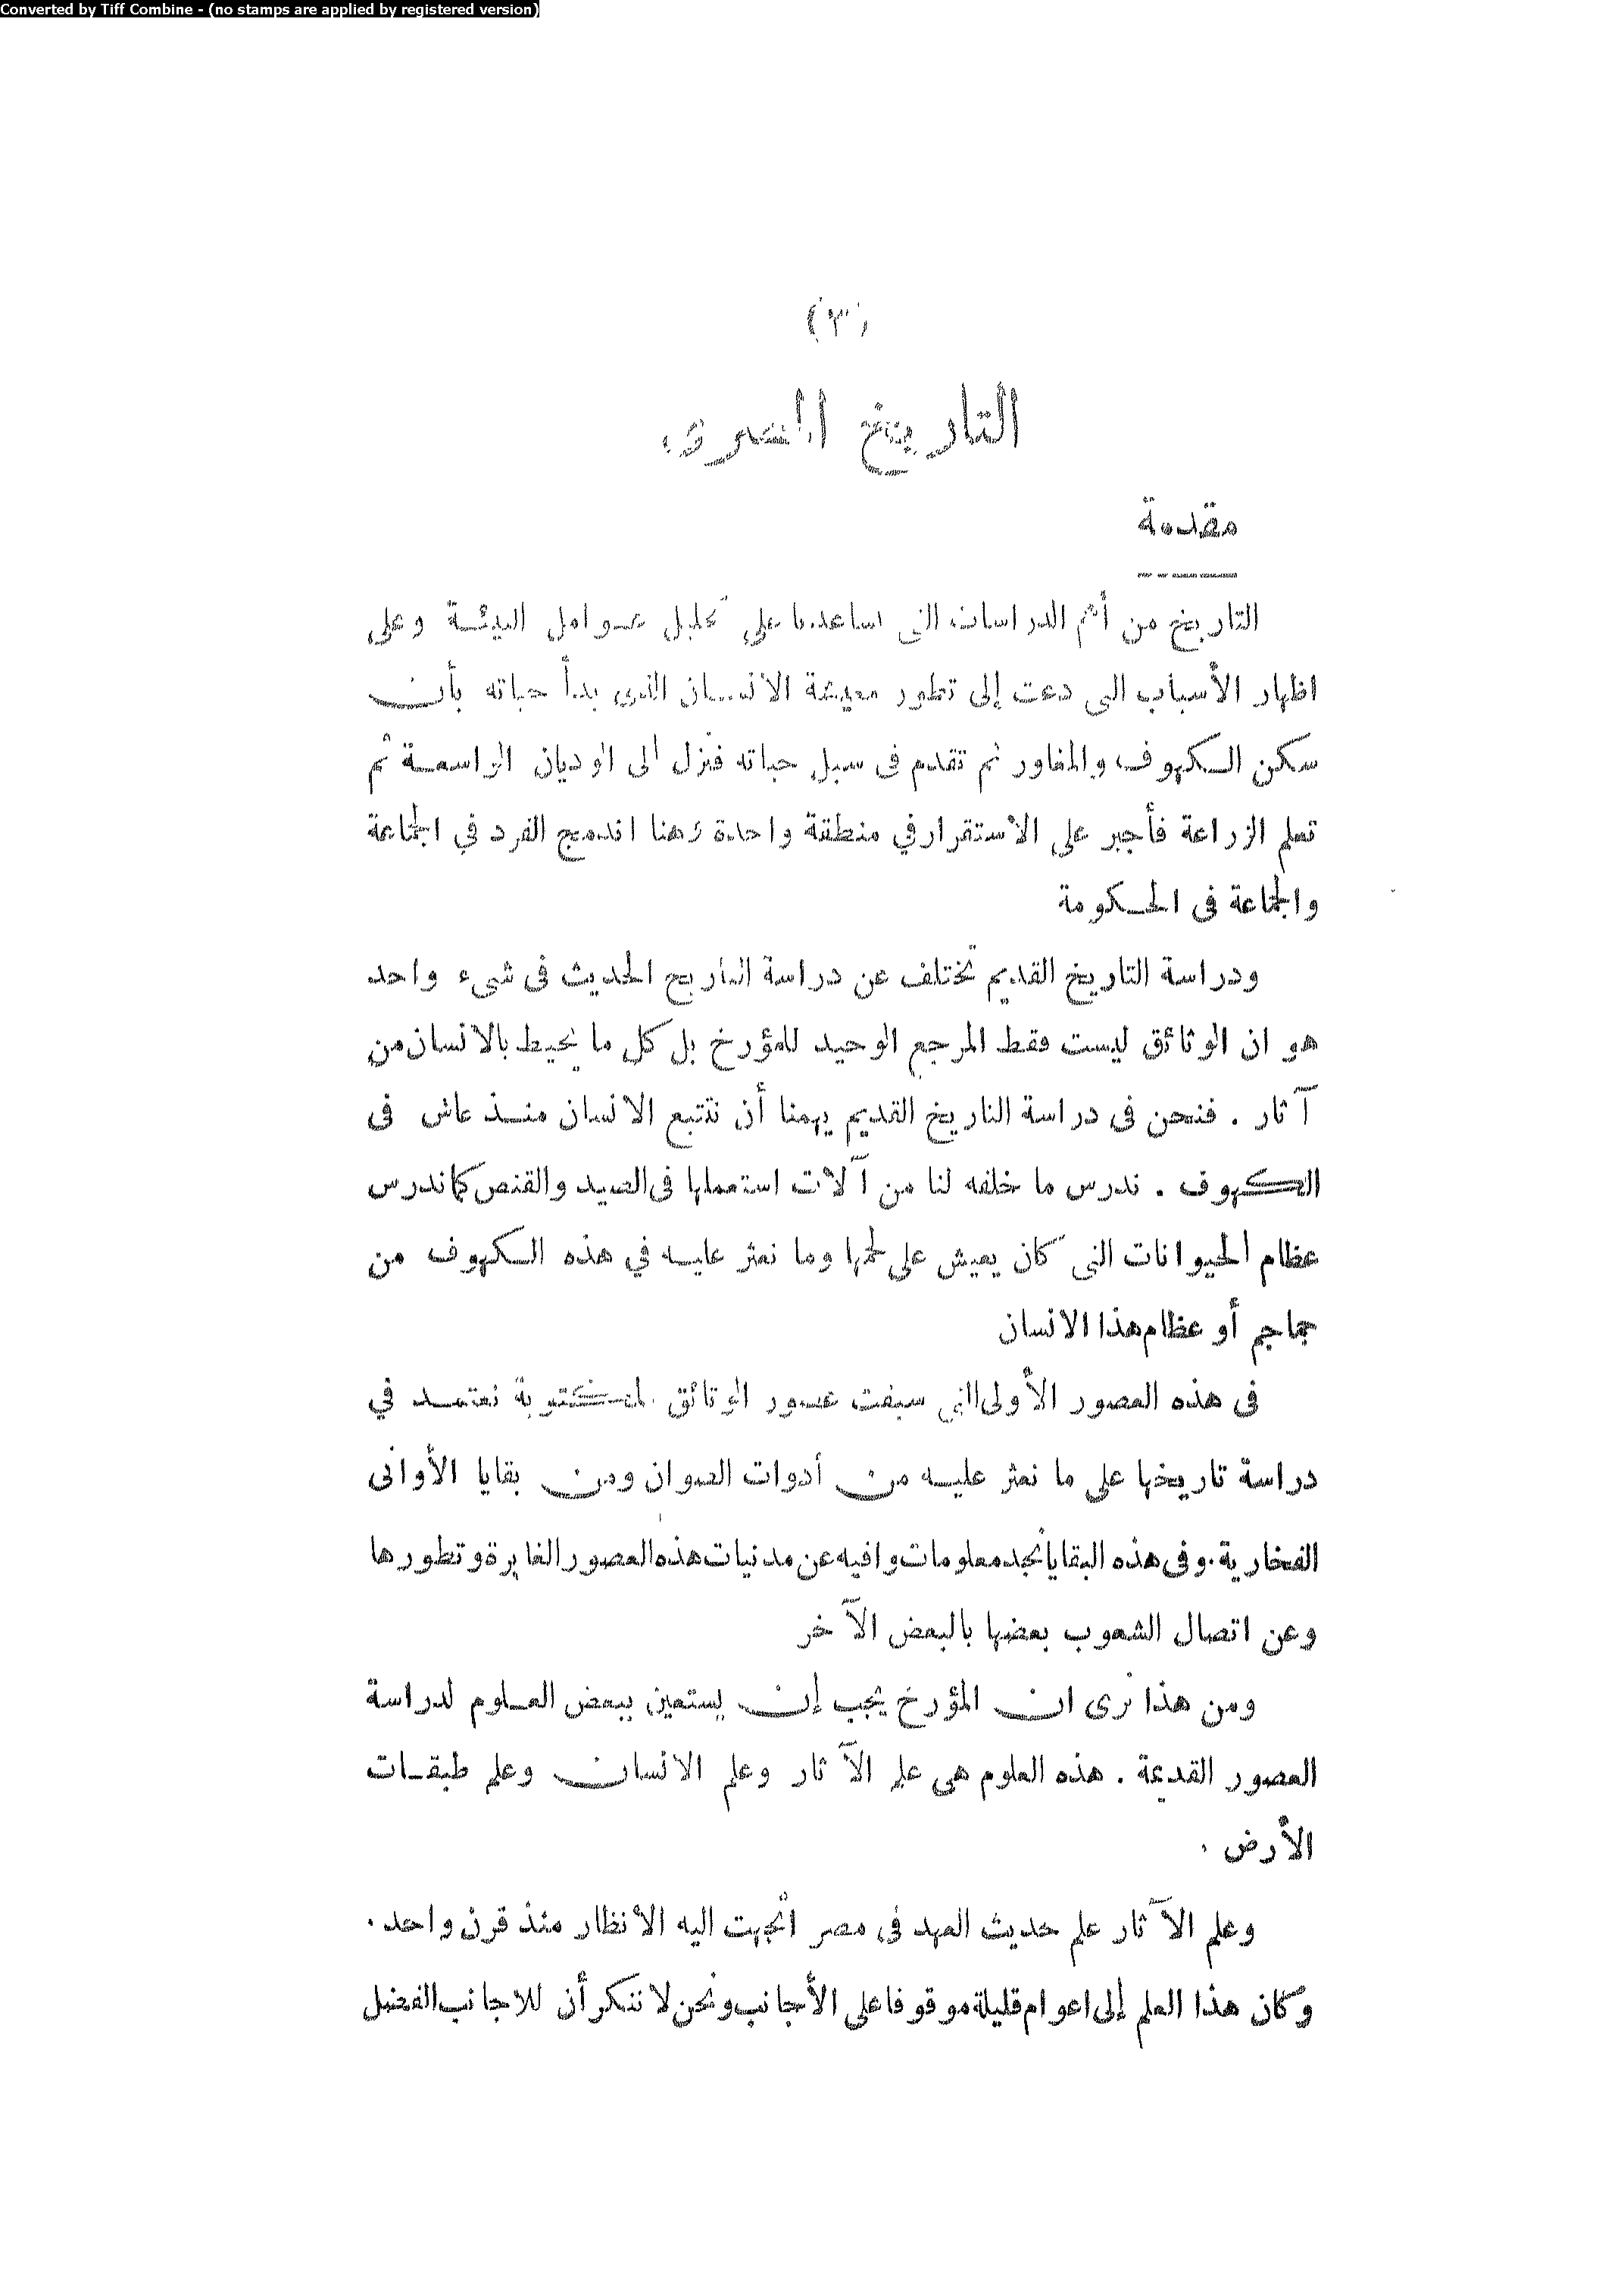 Converted by Tiff Combine - (no stamps are applied by registered version)
(٣)
التاريخ المصرى
مقدمة
التاريخ من أهم الدراسات التى تساعدنا على تحليل عوامل البيئة وعلى
اظهار الأسباب التى دعت إلى تطور معيشة الانسان الذى بدأ حياته بأن
سكن الكهوف والمغاور ثم تقدم فى سبل حياته فنزل الى الوديان الواسعة ثم
تعلم الزراعة فأجبر على الاستقرار في منطقة واحدة وهنا اندمج الفرد في الجماعة
والجماعة فى الحكومة
ودراسة التاريخ القديم تختلف عن دراسة التاريخ الحديث فى شىء واحد
هو ان الوثائق ليست فقط المرجع الوحيد للمؤرخ بل كل ما يحيط بالانسان من
آثار . فنحن فى دراسة التاريخ القديم يهمنا أن نتتبع الانسان منذ عاش فى
الكهوف . ندرس ما خلفه لنا من آلات استعملها فى الصيد والقنص كما ندرس
عظام الحيوانات التى كان يعيش على لحمها وما نعثر عليه في هذه الكهوف من
جماجم أو عظام هذا الانسان
فى هذه العصور الأولى التي سبقت عصور الوثائق المكتوبة نعتمد في
دراسة تاريخها على ما نعثر عليه من أدوات الصوان ومن بقايا الأوانى
الفخارية . وفى هذه البقايا نجد معلومات وافيه عن مدنيات هذه العصور الغابرة وتطورها
وعن اتصال الشعوب بعضها بالبعض الآخر
ومن هذا نرى ان المؤرخ يجب إن يستعين ببعض العلوم لدراسة
العصور القديمة . هذه العلوم هى علم الآثار وعلم الانسان وعلم طبقات
الأرض .
وعلم الآثار علم حديث العهد فى مصر اتجهت اليه الأنظار منذ قرن واحد .
وكان هذا العلم إلى اعوام قليلة موقوفا على الأجانب ونحن لا ننكر أن للاجانب الفضل